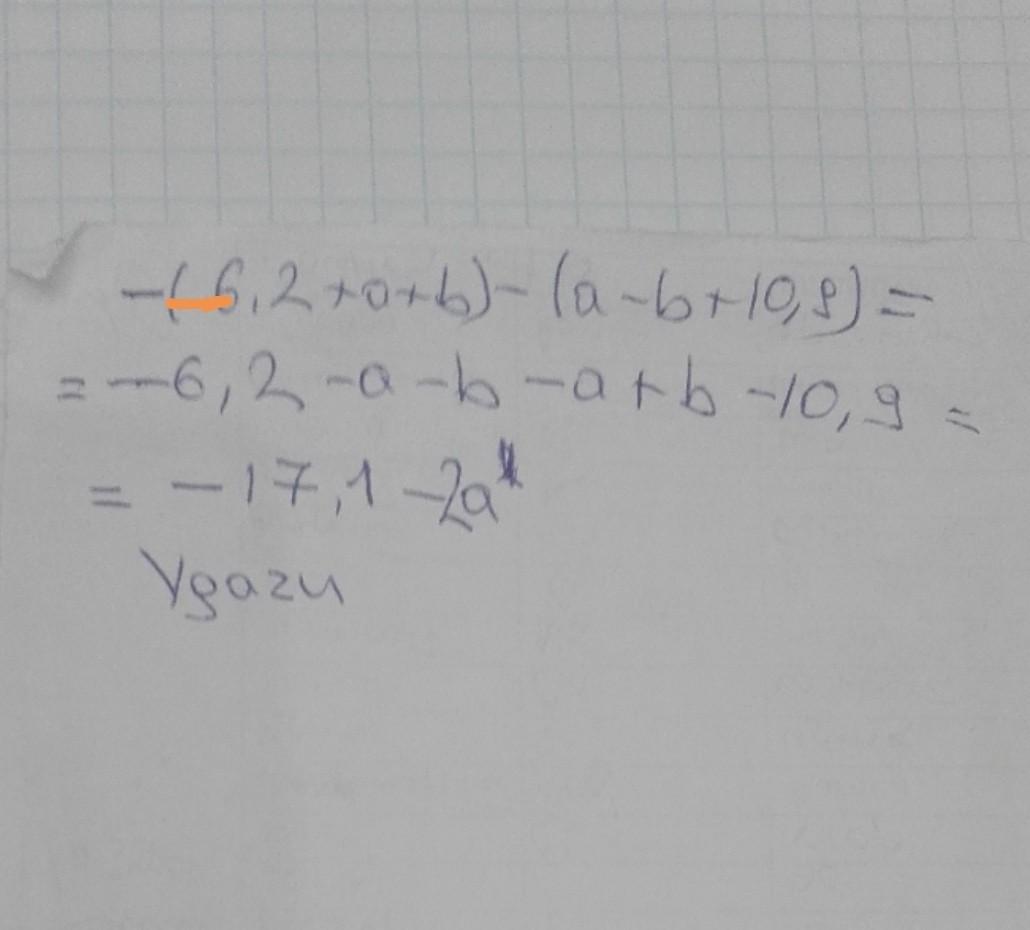 -(6,2+a+b)-(a-b+10,9)=
=-6,2-a-b-a+b-10,9=
=-17,1-2a
Удачи